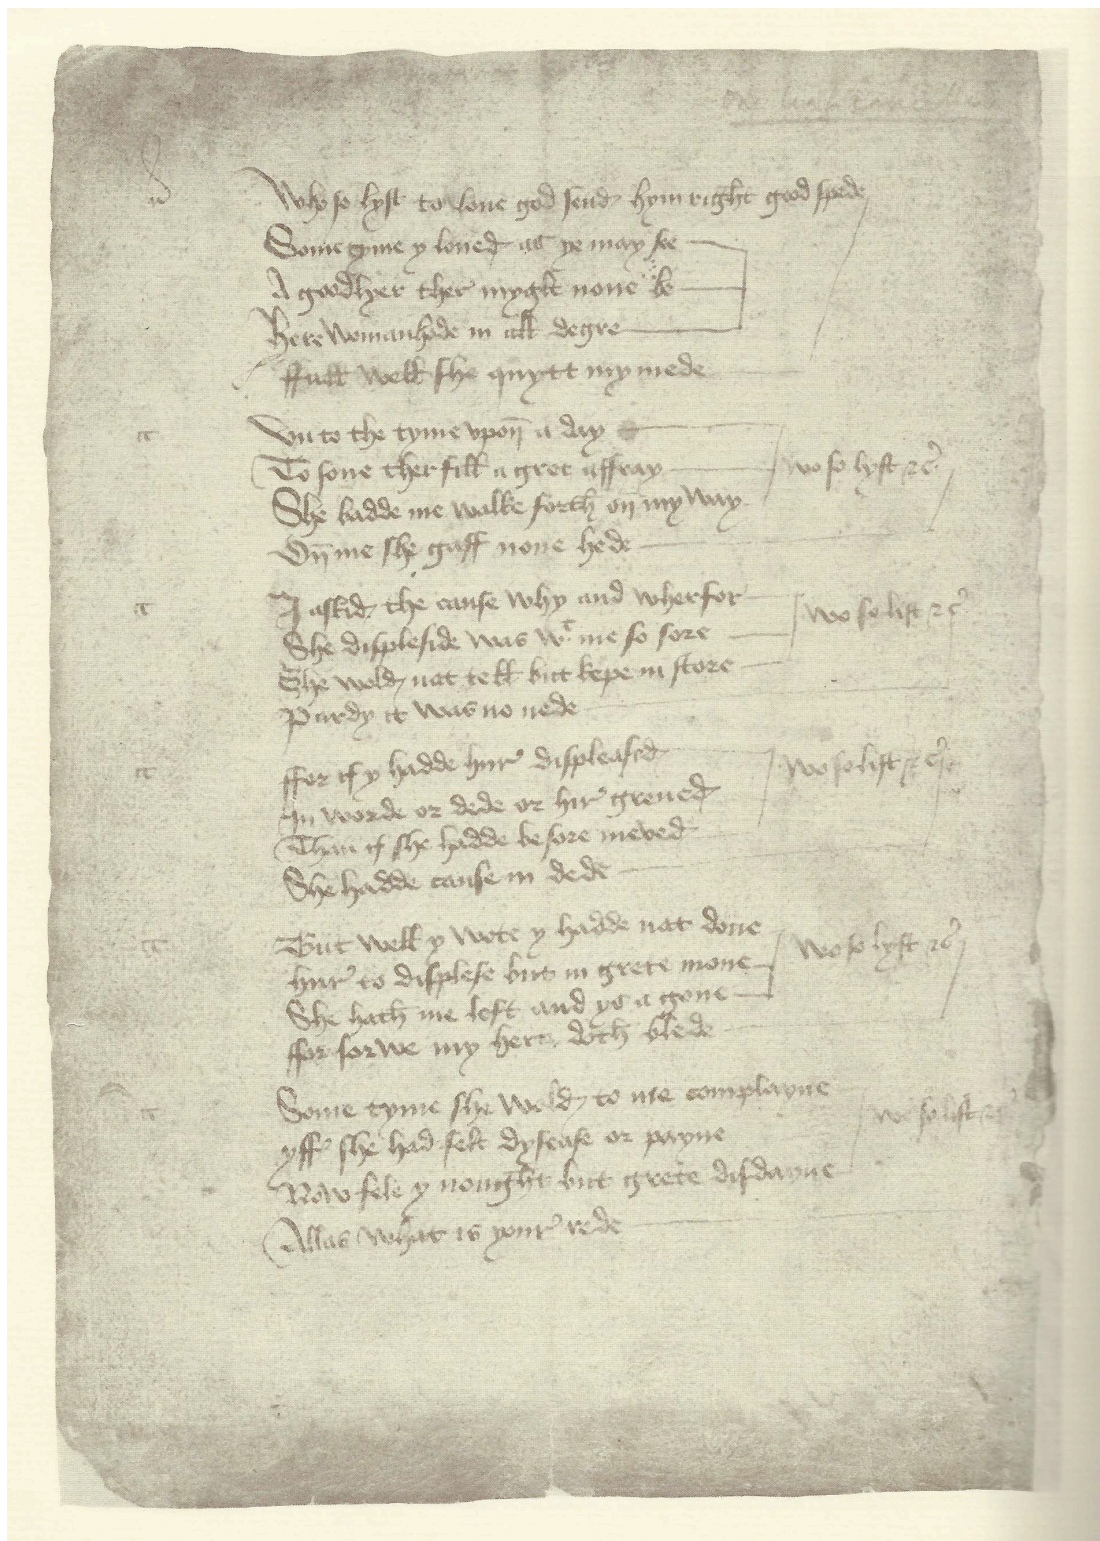 Who so lyst to loue god send hym right good spede
Some tyme y loued as ye may see
A goodlyer ther myght none be
Here womanhode in all degre
ffull well she quytt my mede
Vn to the tyme vpon a day
To sone ther fill a gret affray
wo so lyst &c
She badde me walke forth on my way
On me she gaff none hede
I askid the cause why and wherfor
wo so list &c
She displeside was wt me so sore
She wold nat tell but kepe in store
Pardy it was no nede
ffor if y hadde hur displeased
wo so list &c
In worde or dede or hir greued
Than if she hadde be sore meved
She hadde cause in dede
But well y wote y hadde nat done
wo so lyst &c
hur to displese but in grete mone
She hath me left and ys a gone
ffor sorwe my hert doth blede
Some tyme she wold to me complayne
wo so list &c
yff she had felt dysease or payne
Now fele y nought but grete disdayne
Allas what is your rede